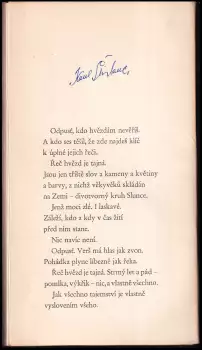 Karel Šiktanc
Odpusť, kdo hvězdám nevěříš.
A kdo ses těšil, že zde najdeš klíč
k úplné jejich řeči.
Řeč hvězd je tajná.
Jsou jen tříště slov a kameny a květiny
a barvy, z nichž věkyvěků skládán
na Zemi – divotvorný kruh Slunce.
Jenž moci zlé. I laskavé.
Záleží, kdo z kdy v čas žití
před ním stane.
Nic navíc není.
Odpusť. Verš má hlas jak zvon.
Pohádka plyne líbezně jak řeka.
Řeč hvězd je tajná. Strmý let a pád –
pomlka, výkřik – nic, a vlastně všechno.
Jak všechno tajemství je vlastně
vyslovením všeho.